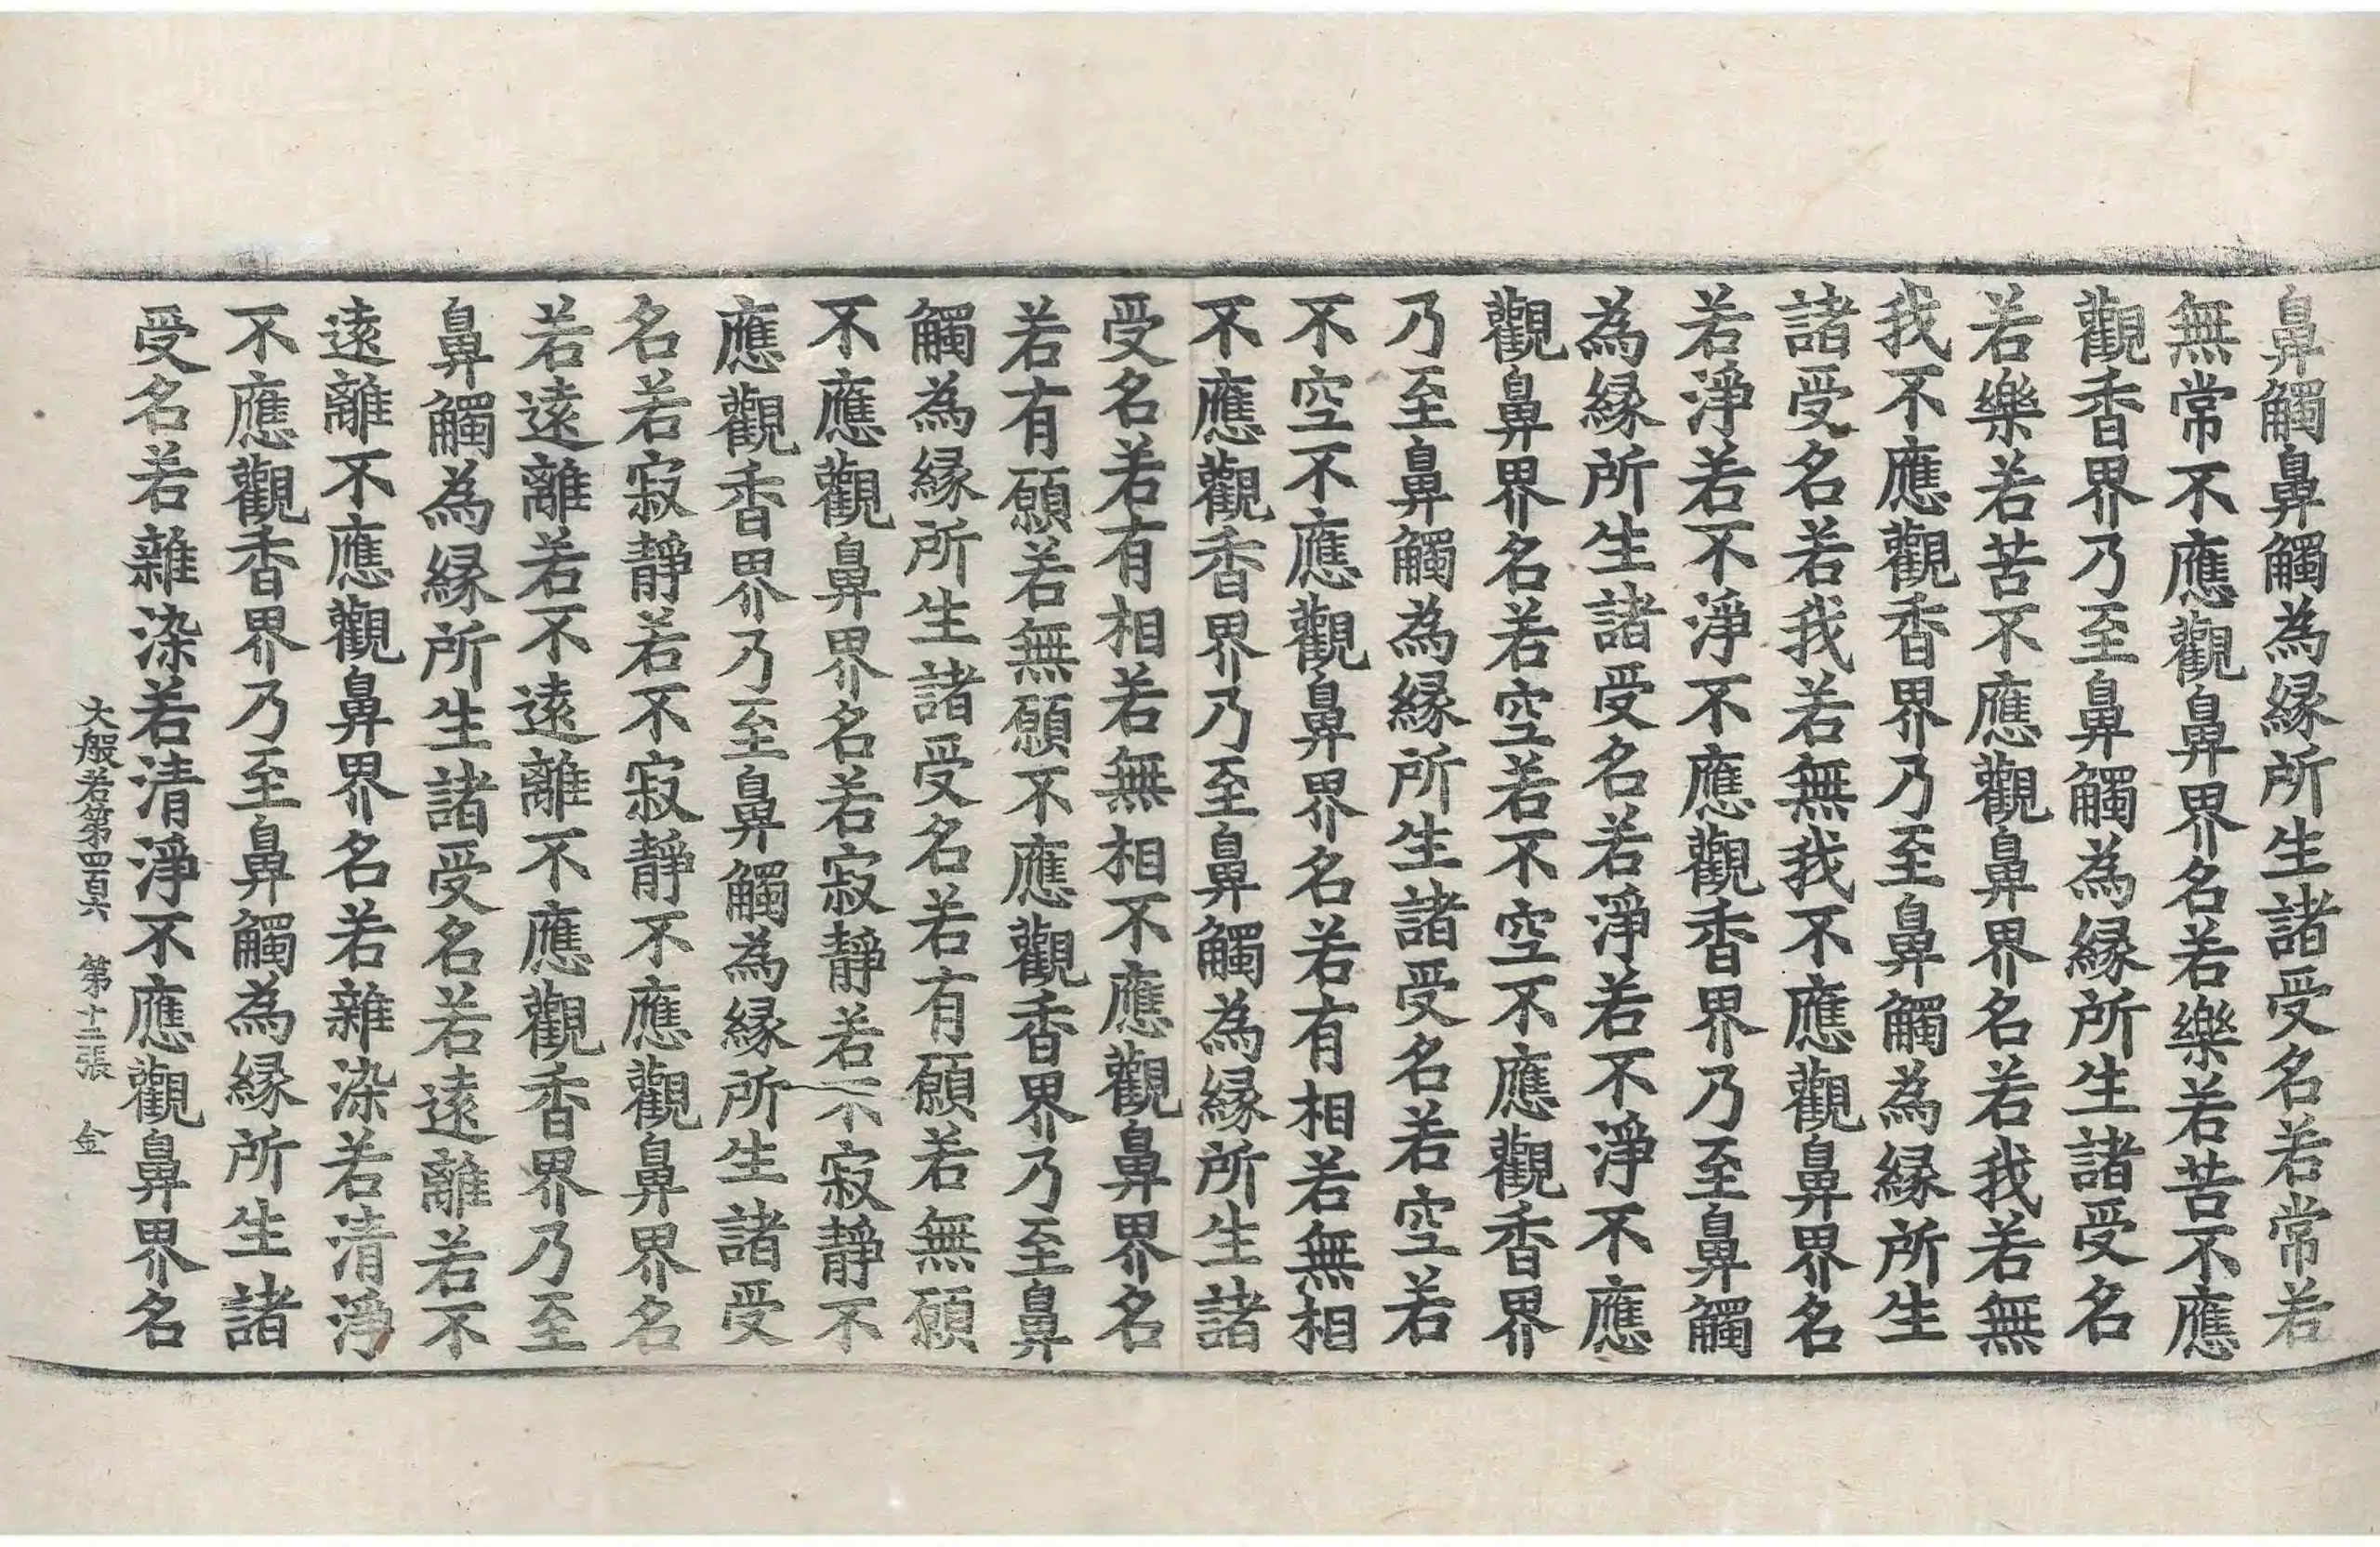 鼻觸鼻觸為縁所生諸受名若常若
無常不應觀鼻界名若樂若苦不應
觀香界乃至鼻觸為縁所生諸受名
若樂若苦不應觀鼻界名若我若無
我不應觀香界乃至鼻觸為縁所生
諸受名若我若無我不應觀鼻界名
若淨若不淨不應觀香界乃至鼻觸
為縁所生諸受名若淨若不淨不應
觀鼻界名若空若不空不應觀香界
乃至鼻觸為縁所生諸受名若空若
不空不應觀鼻界名若有相若無相
不應觀香界乃至鼻觸為縁所生諸
受名若有相若無相不應觀鼻界名
若有願若無願不應觀香界乃至鼻
觸為縁所生諸受名若有願若無願
不應觀鼻界名若寂靜若不寂靜不
應觀香界乃至鼻觸為縁所生諸受
名若寂靜若不寂靜不應觀鼻界名
若遠離若不遠離不應觀香界乃至
鼻觸為縁所生諸受名若遠離若不
遠離不應觀鼻界名若雜染若清淨
不應觀香界乃至鼻觸為縁所生諸
受名若雜染若清淨不應觀鼻界名
大般若第四百六 第十二張 金